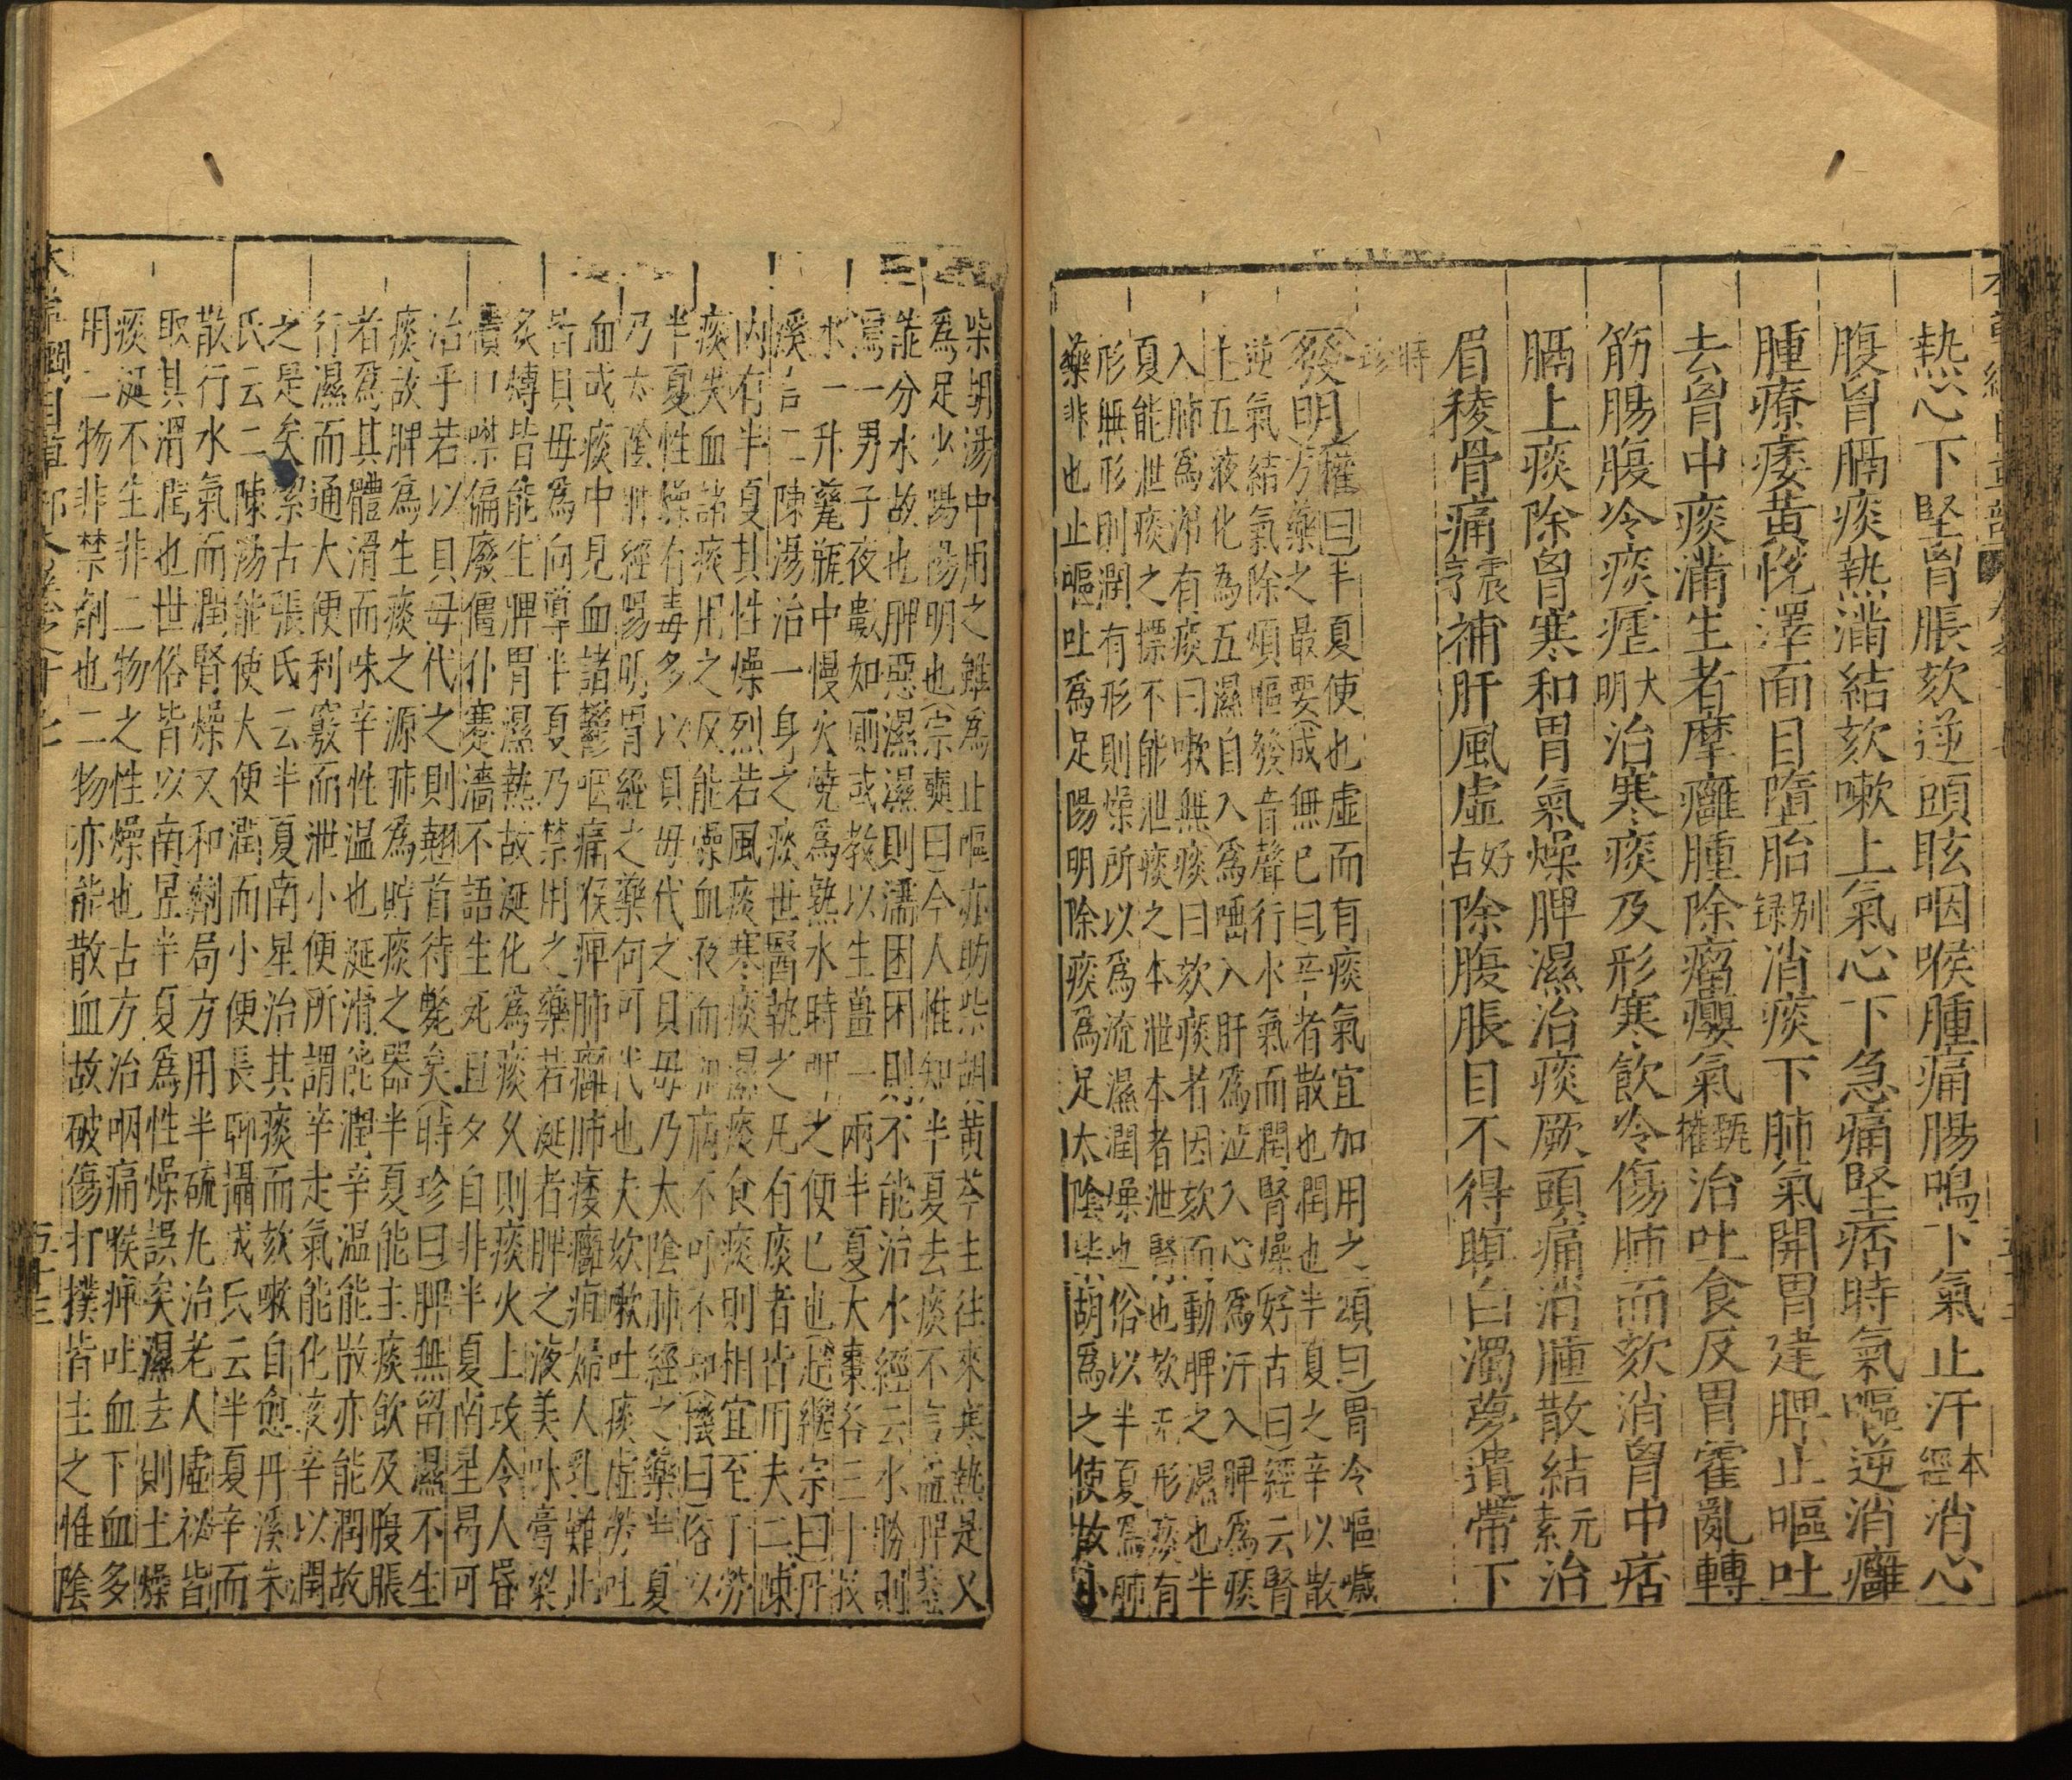 熱心下堅胷脹欬逆頭眩咽喉腫痛腸鳴下氣止汗本經消心
腹胷膈痰熱滿結欬嗽上氣心下急痛堅痞時氣嘔逆消癰
腫療痿黃悅澤面目墮胎别録消痰下肺氣開胃健脾止嘔吐
去胷中痰滿生者摩癰腫除瘤癭氣甄權治吐食反胃霍亂轉
筋腸腹冷痰瘧大明治寒痰及形寒飲冷傷肺而欬消胷中痞
膈上痰除胷寒和胃氣燥脾濕治痰厥頭痛消腫散結元素治
眉稜骨痛震亨補肝風虛好古除腹脹目不得瞑白濁夢遺帶下
時珍
發明權曰半夏使也虛而有痰氣宜加用之頌曰胃冷嘔噦
方藥之最要成無已曰辛者散也潤也半夏之辛以散
逆氣結氣除煩嘔發音聲行水氣而潤腎燥好古曰經云腎
主五液化為五濕自入為唾入肝爲泣入心爲汗入脾爲痰
入肺爲涕有痰曰嗽無痰曰欬痰者因欬而動脾之濕也半
夏能泄痰之標不能泄痰之本泄本者泄腎也欬无形痰有
形無形則潤有形則燥所以爲流濕潤燥也俗以半夏爲肺
藥非也止嘔吐爲足陽明除痰爲足太陰柴胡爲之使故小
柴胡湯中用之雖爲止嘔亦助柴胡黃芩主往來寒熱是又
爲足少陽陽明也宗奭曰今人惟知半夏去痰不言益脾蓋
能分水故也脾惡濕濕則濡困困則不能治水經云水勝則
瀉一男子夜數如厠或教以生薑一兩半夏大棗各三十枚
水一升甆瓶中慢火燒爲熟水時呷之便已也趙繼宗曰丹
溪言二陳湯治一身之痰世醫執之凡有痰者皆用夫二陳
內有半夏其性燥烈若風痰寒痰濕痰食痰則相宜至于勞
痰失血諸痰用之反能燥血液而加病不可不知機曰俗以
半夏性燥有毒多以貝母代之貝母乃太陰肺經之藥半夏
乃太陰脾經陽明胃經之藥何可代也夫欬嗽吐痰虛勞吐
血或痰中見血諸鬱咽痛喉痹肺癰肺痿癰疽婦人乳難此
皆貝母爲向導半夏乃禁用之藥若涎者脾之液美味膏粱
炙煿皆能生脾胃濕熱故涎化爲痰久則痰火上攻令人昏
憒口噤偏廢僵仆蹇澀不語生死旦夕自非半夏南星曷可
治乎若以貝母代之則翹首待斃矣時珍曰脾無留濕不生
痰故脾爲生痰之源肺爲貯痰之器半夏能主痰飲及腹脹
者爲其體滑而味辛性温也涎滑能潤辛温能散亦能潤故
行濕而通大便利竅而泄小便所謂辛走氣能化液辛以潤
之是矣潔古張氏云半夏南星治其痰而欬嗽自愈丹溪朱
氏云二陳湯能使大便潤而小便長聊攝成氏云半夏辛而
散行水氣而潤腎燥又和劑局方用半硫丸治老人虛祕皆
取其滑潤也世俗皆以南星半夏爲性燥誤矣濕去則土燥
痰涎不生非二物之性燥也古方治咽痛喉痹吐血下血多
用二物非禁劑也二物亦能散血故破傷打撲皆主之惟陰